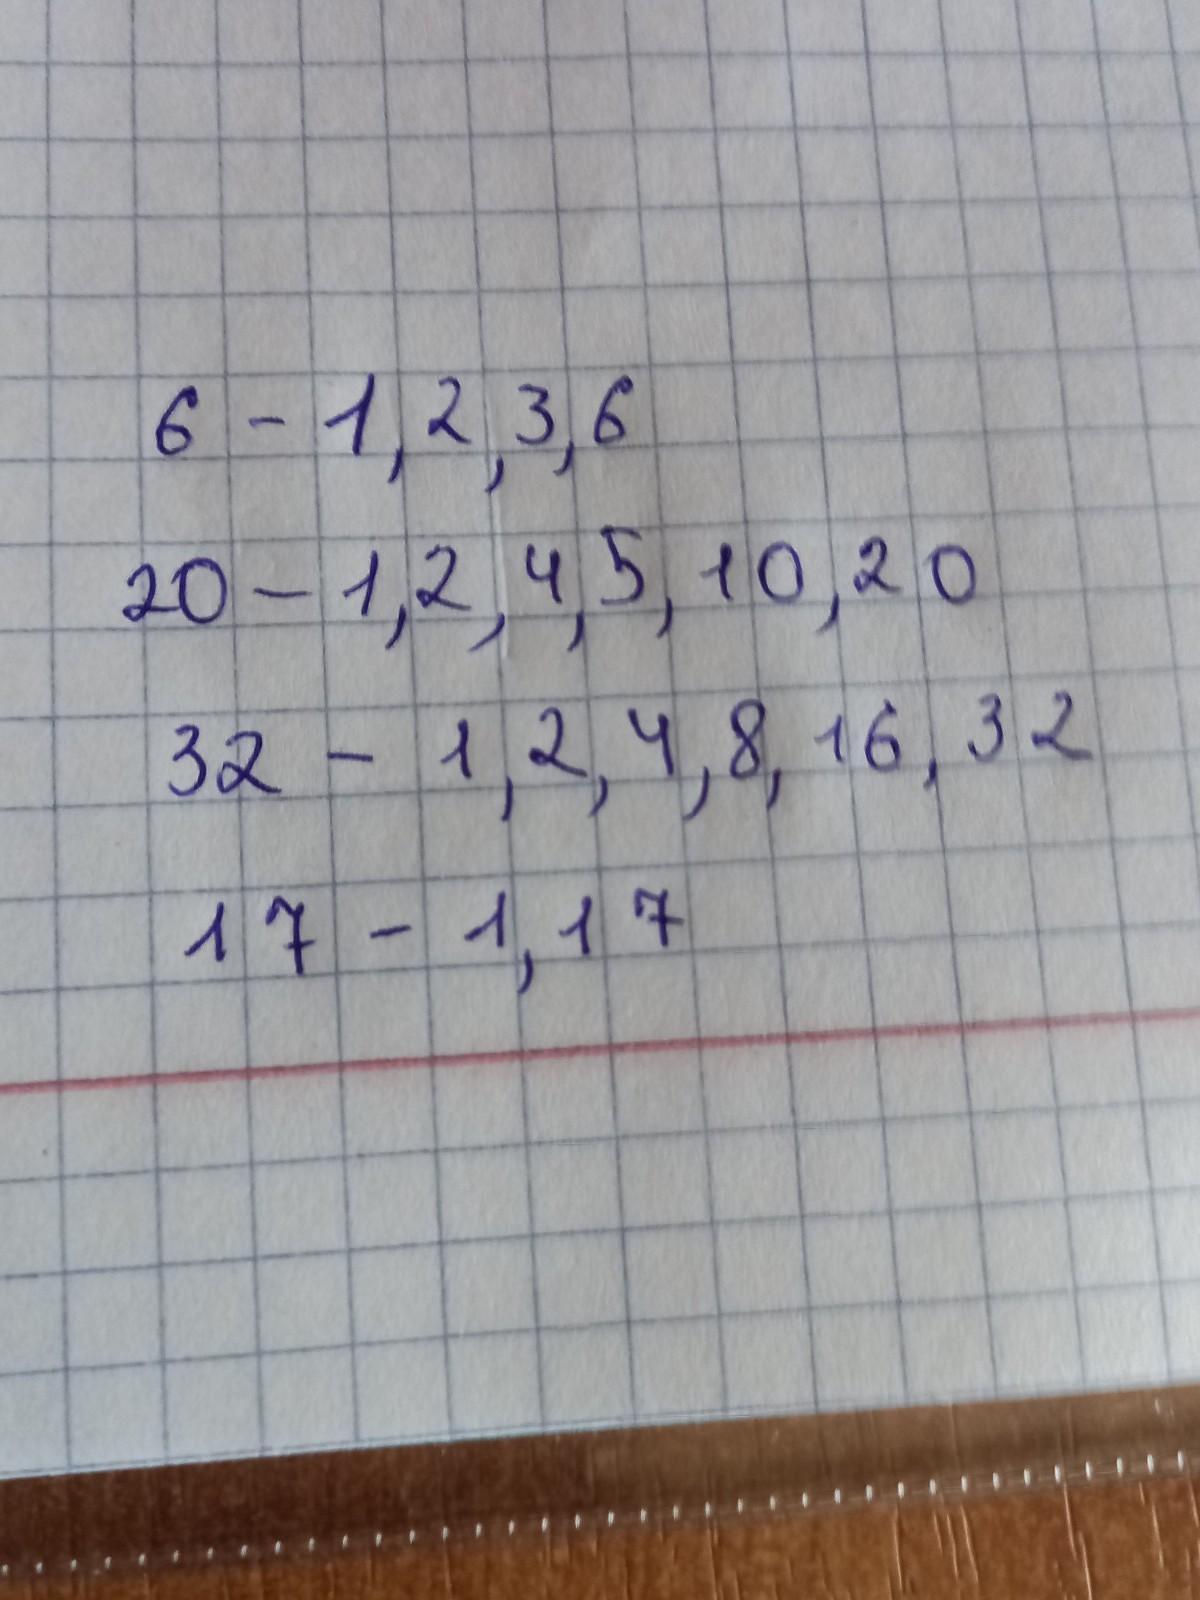 6 - 1, 2, 3, 6
20 - 1, 2, 4, 5, 10, 20
32 - 1, 2, 4, 8, 16, 32
17 - 1, 17